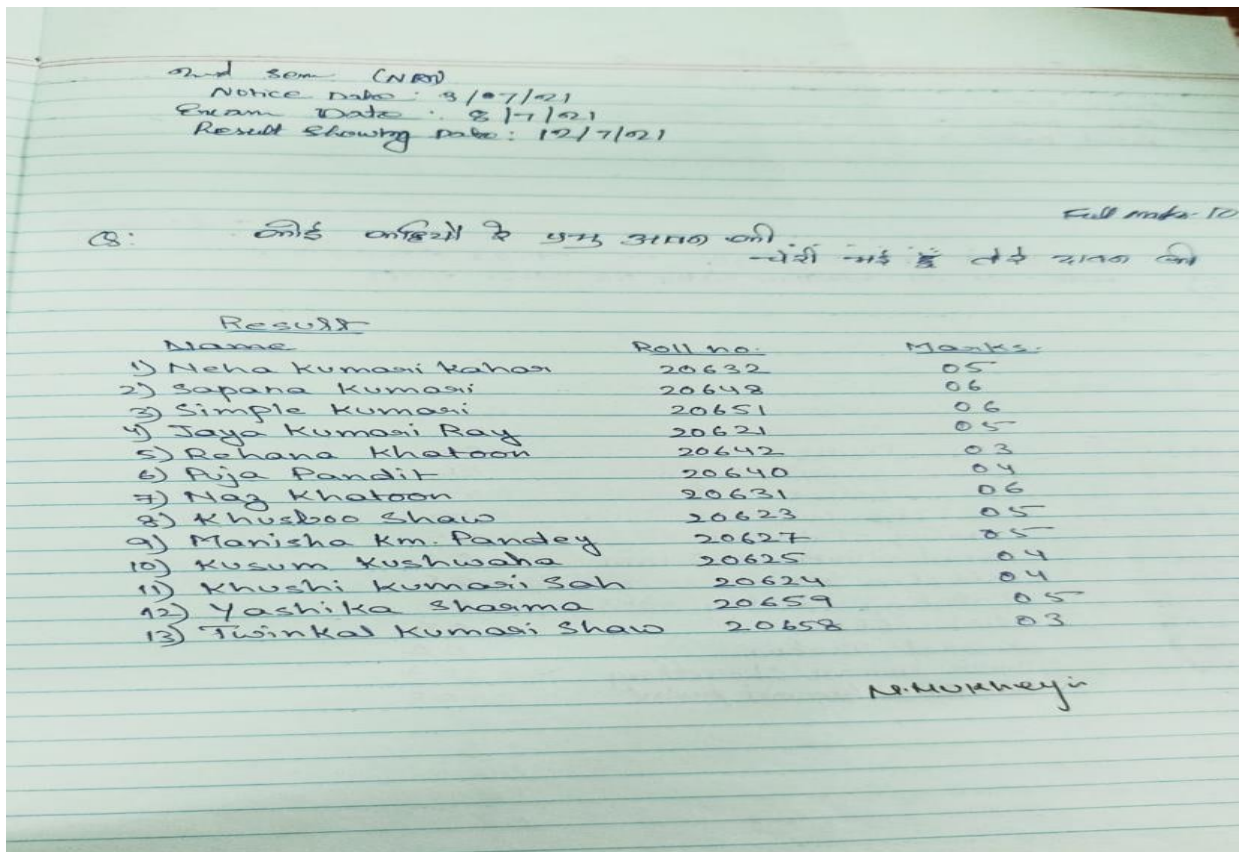 2nd sem (NEW)
Notice Date: 3/07/21
Exam Date: 8/7/21
Result Showing Date: 12/7/21
Full marks-10
Q: कोई के
Result
Name Roll no. Marks.
1) Neha Kumari Kahar 20632 05
2) Sapana Kumari 20648 06
3) Simple Kumari 20651 06
4) Jaya Kumari Ray 20621 05
5) Rehana Khatoon 20642 03
6) Puja Pandit 20640 04
7) Naz Khatoon 20631 06
8) Khusboo Shaw 20623 05
9) Manisha Km. Pandey 20627 05
10) Kusum Kushwaha 20625 04
11) Khushi Kumari Sah 20624 04
12) Yashika Sharma 20659 05
13) Twinkal Kumari Shaw 20658 03
N.Mukherji